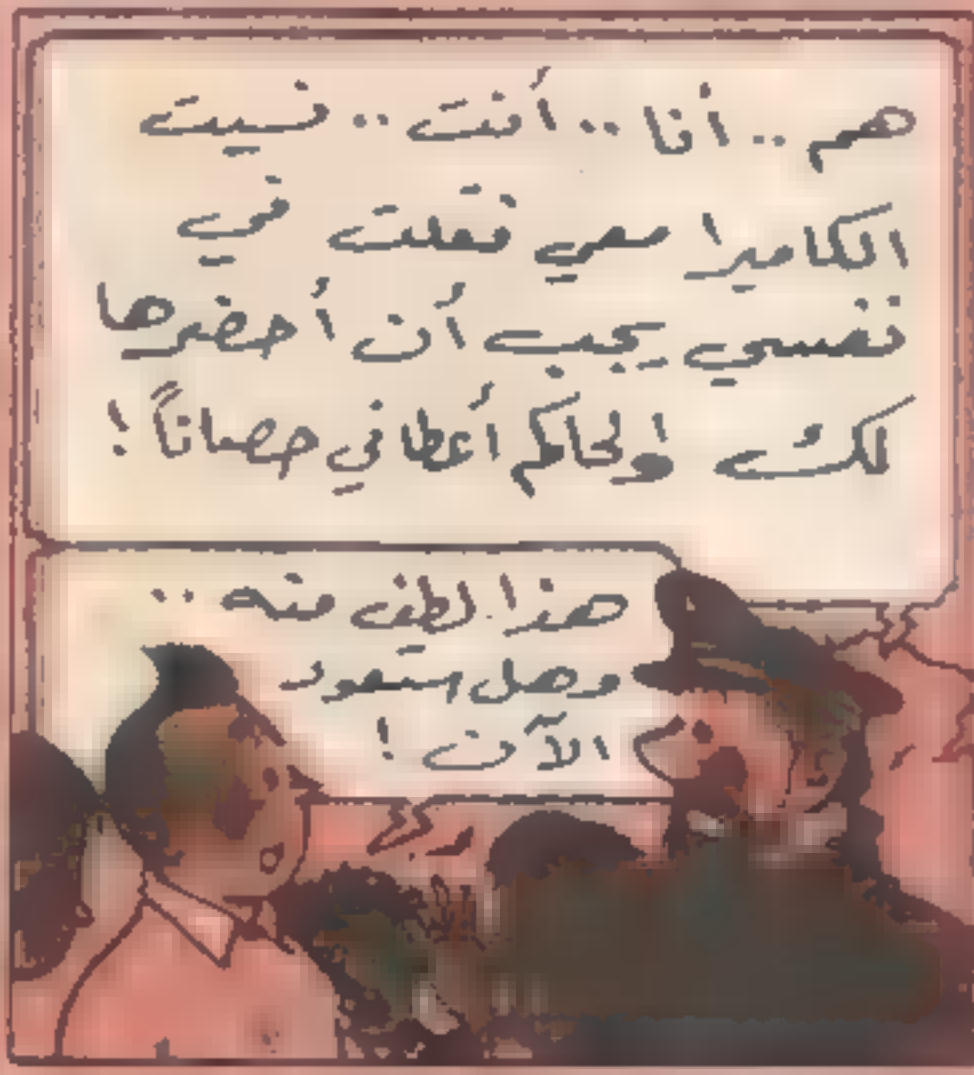 هم .. أنا .. أنت .. نسيت
الكاميرا معي فقلت في
نفسي يجب أن أحضرها
لك والحاكم أعطاني حصاناً !
هذا لطف منه ..
وهل ستعود
الآن !